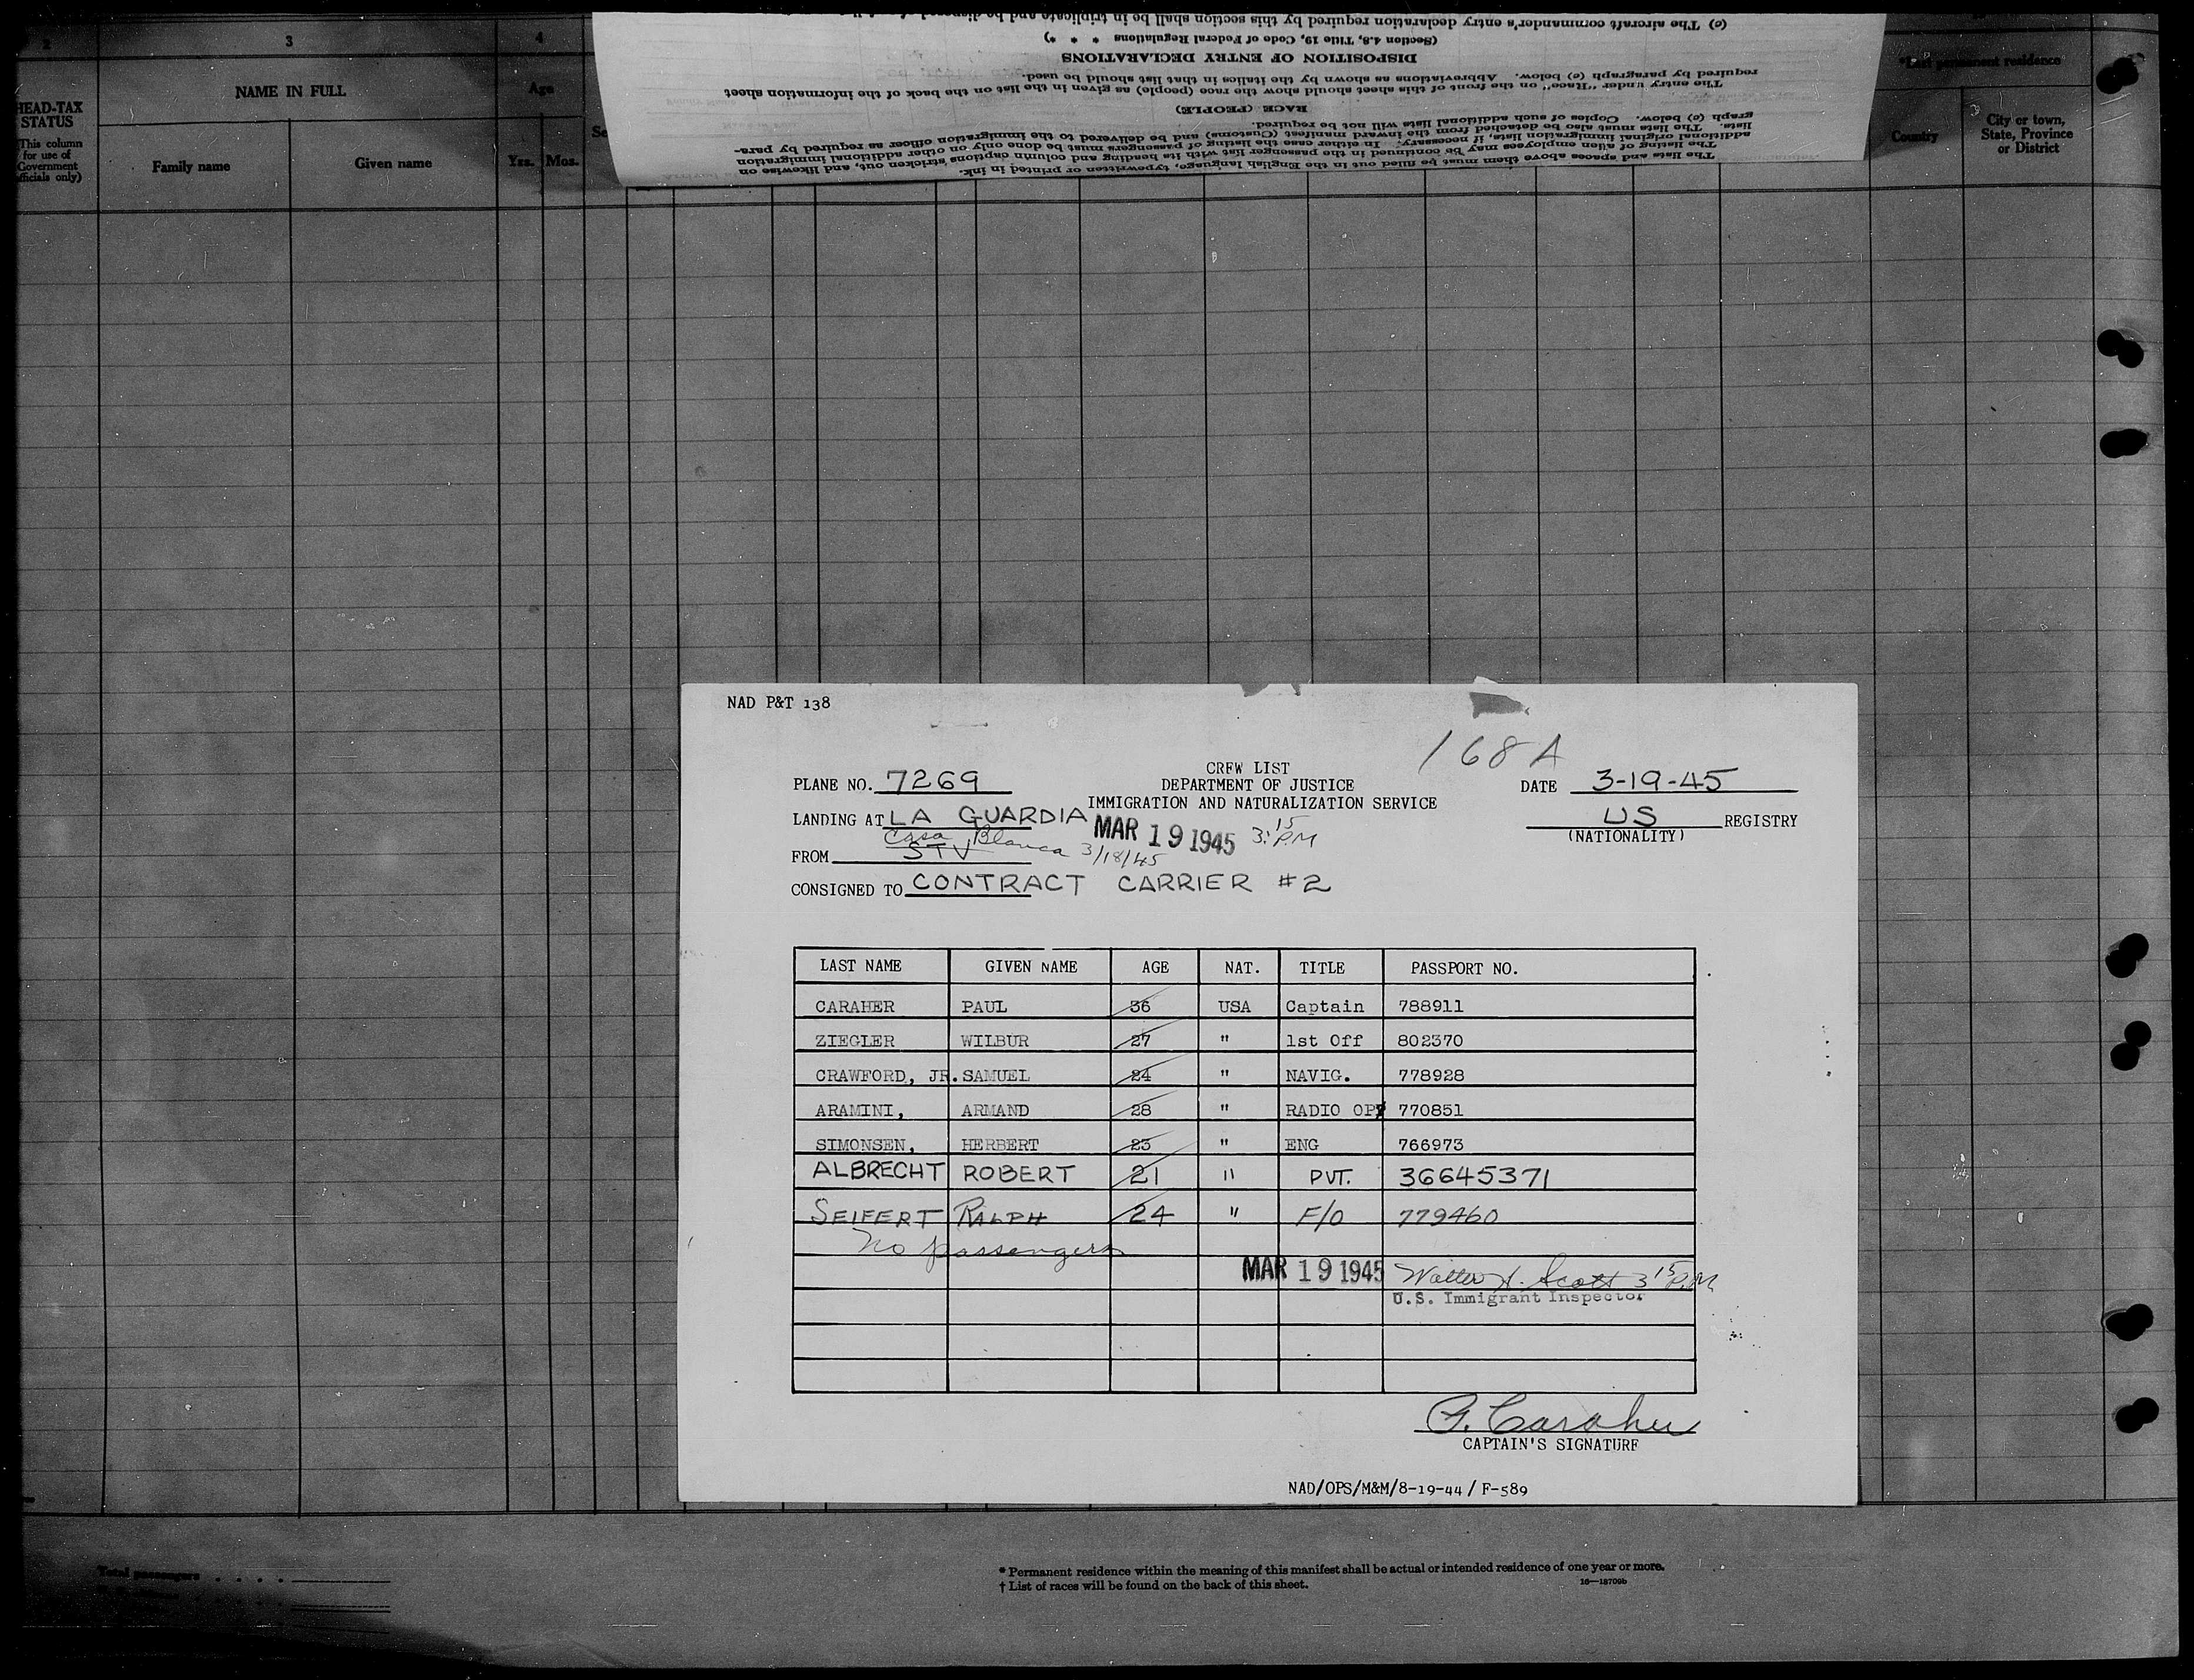 2
3
4
HEAD-TAX
STATUS
This column
for use of
Government
NAME IN FULL
Family name
Given name
Age
Yrs.
Mos.
*Last permanent residence
Country
City or town,
State, Province
or District
The lists and spaces above them must be filled out in the English language, typewritten or printed in ink.
The listing of alien employees may be continued in the passenger list with its heading and column captions stricken out, and likewise on
additional original immigration lists, if necessary. In either case the listing of passengers must be done only on other additional immigration
lists. The lists must also be detached from the inward manifest (Customs) and be delivered to the immigration officer as required by para-
graph (c) below. Copies of such additional lists will not be required.
RACE (PEOPLE)
The entry under "Race" on the front of this sheet should show the race (people) as given in the list on the back of the information sheet
required by paragraph (e) below. Abbreviations as shown by the italics in that list should be used.
DISPOSITION OF ENTRY DECLARATIONS
(Section 4.8, Title 19, Code of Federal Regulations * * *)
(c) The aircraft commander's entry declaration required by this section shall be in triplicate and be disposed of
NAD P&T 138
168 A
CREW LIST
PLANE NO. 7269 DEPARTMENT OF JUSTICE DATE 3-19-45
IMMIGRATION AND NATURALIZATION SERVICE
LANDING AT LA GUARDIA MAR 19 1945 3:15 PM US REGISTRY
(NATIONALITY)
Casa Blanca 3/18/45
FROM STV
CONSIGNED TO CONTRACT CARRIER #2
LAST NAME GIVEN NAME AGE NAT. TITLE PASSPORT NO.
CARAHER PAUL 36 USA Captain 788911
ZIEGLER WILBUR 27 " 1st Off 802370
CRAWFORD, JR. SAMUEL 24 " NAVIG. 778928
ARAMINI, ARMAND 28 " RADIO OP 770851
SIMONSEN, HERBERT 23 " ENG 766973
ALBRECHT ROBERT 21 " PVT. 36645371
SEIFERT RALPH 24 " F/O 779460
No passengers
MAR 19 1945 Walter H. Scott 3 15 P.M
U.S. Immigrant Inspector
P. Caraher
CAPTAIN'S SIGNATURE
NAD/OPS/M&M/8-19-44 / F-589
Total passengers
* Permanent residence within the meaning of this manifest shall be actual or intended residence of one year or more.
† List of races will be found on the back of this sheet.
16—18709b